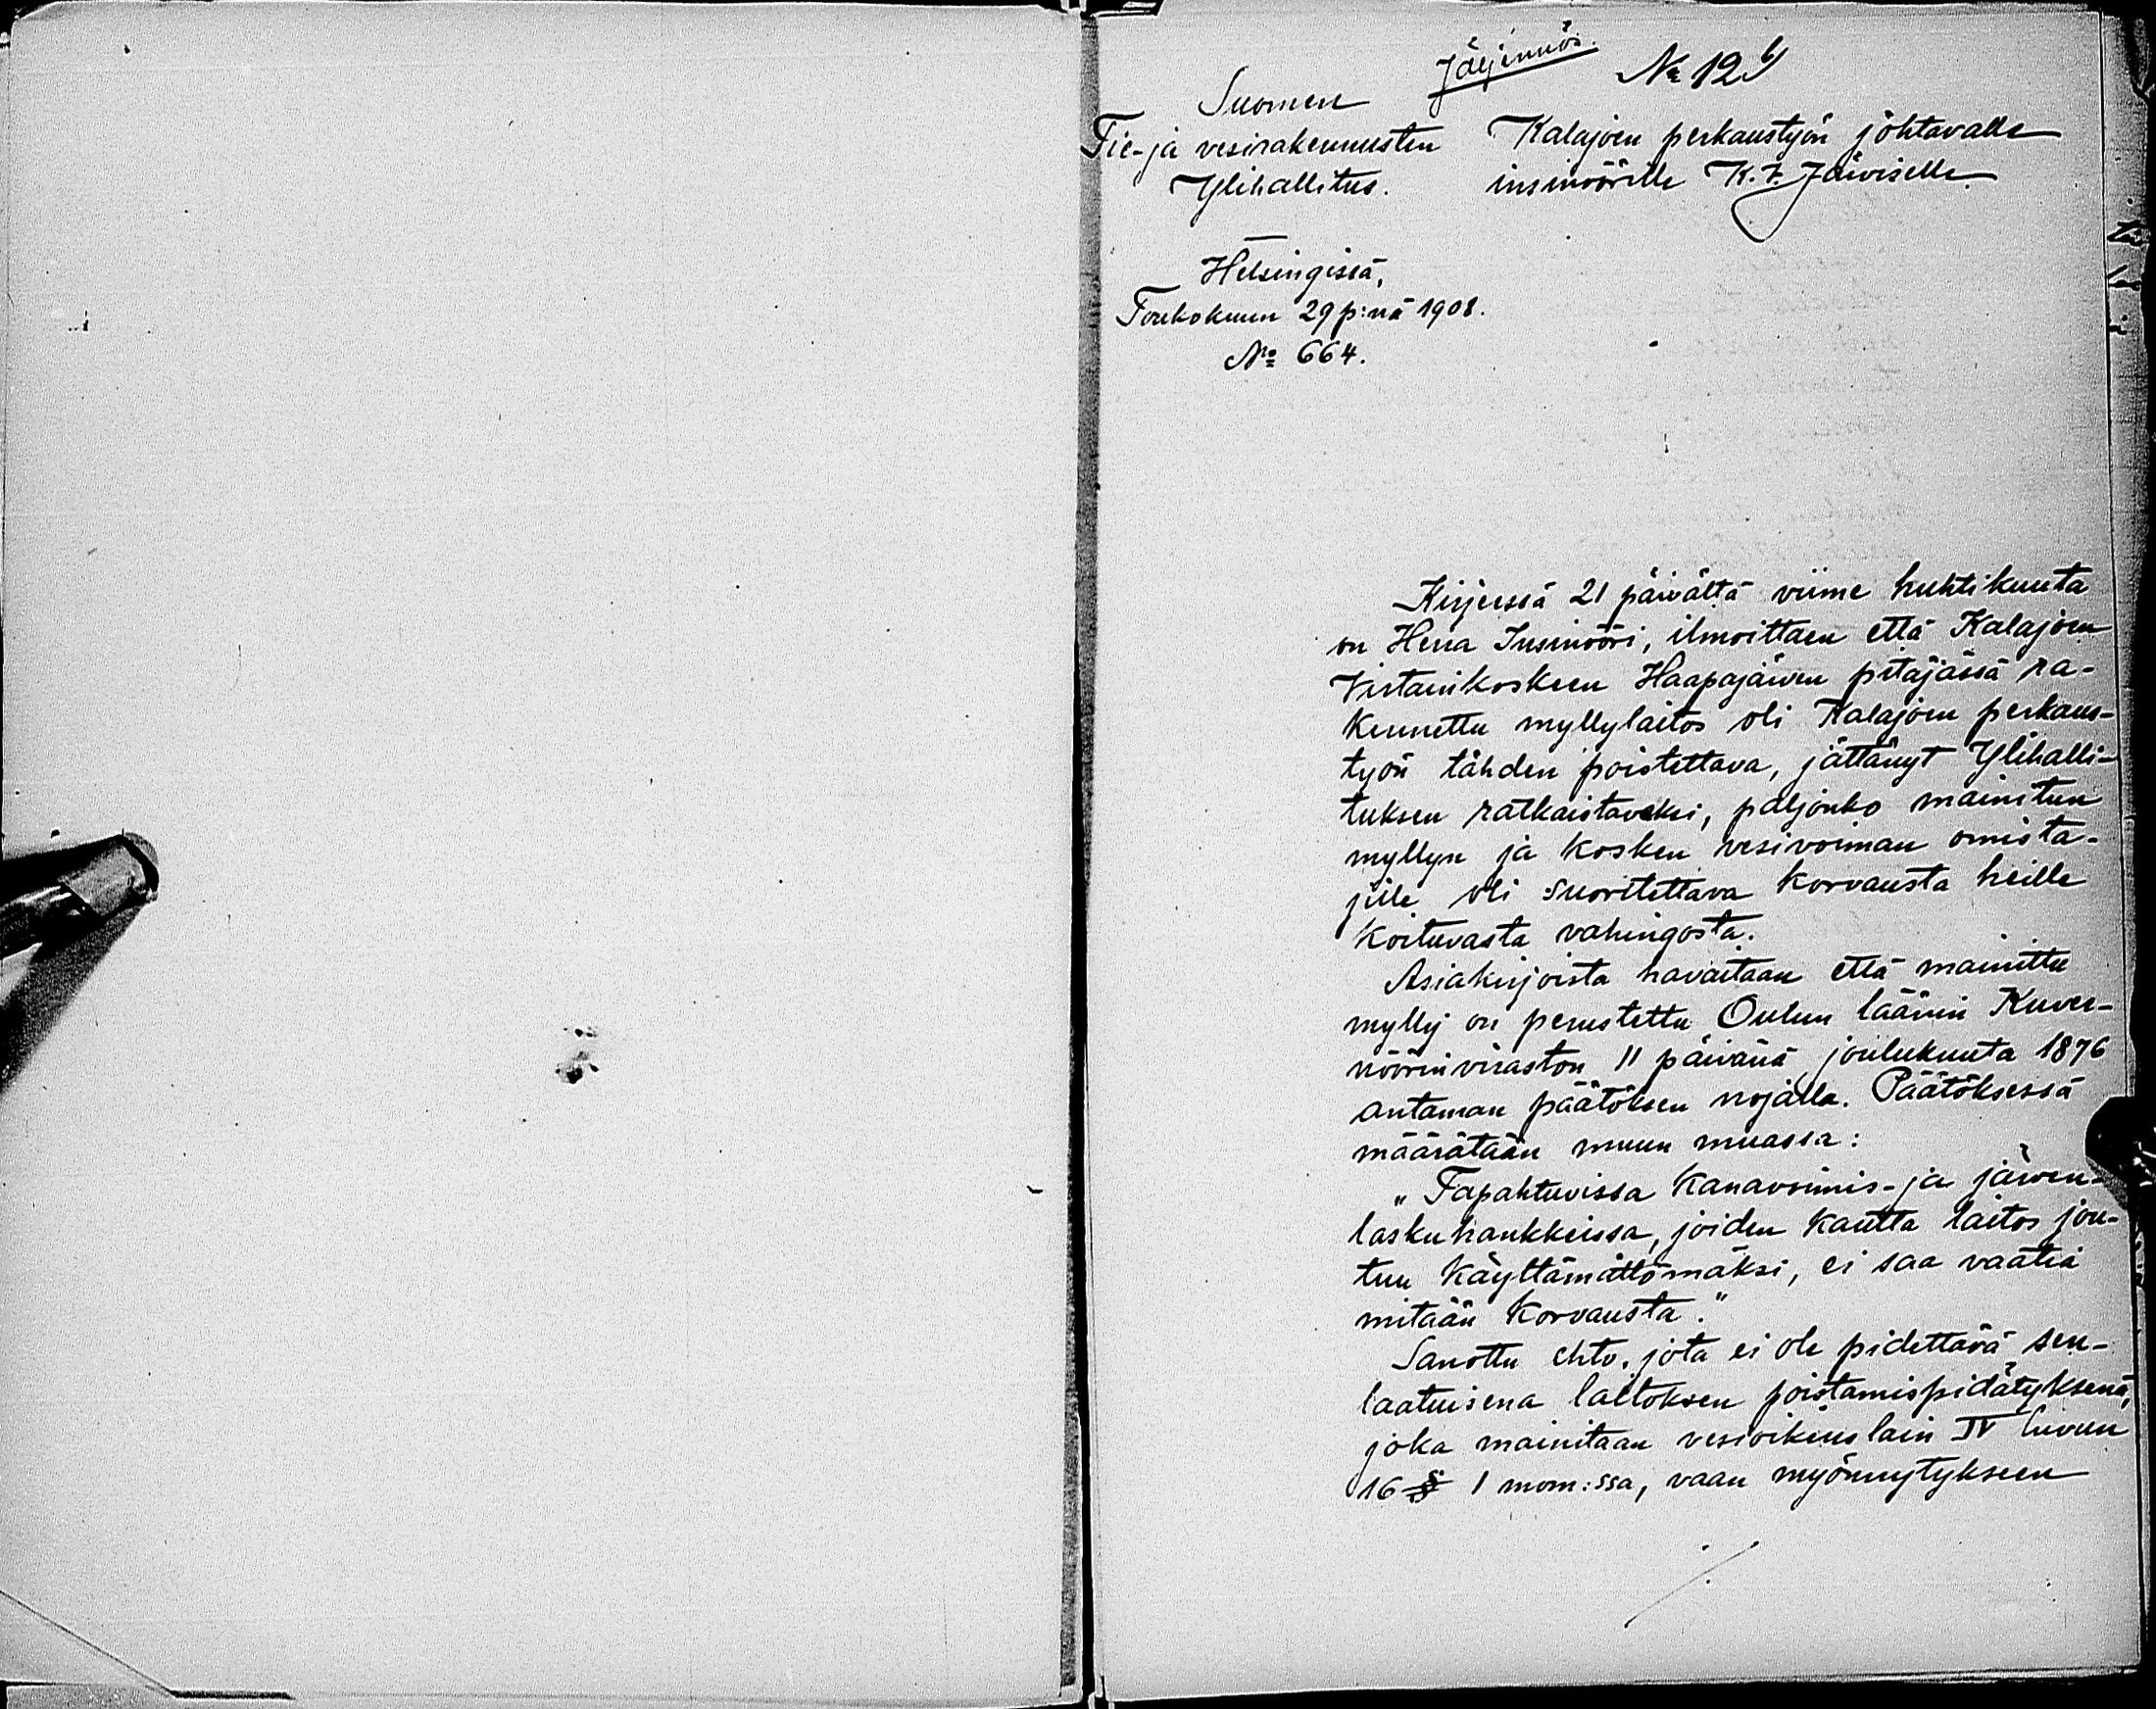 Jäljennös.
№ 12
Suomen
Tie- ja vesirakennusten
Ylihallitus.
Kalajoen perkaustyön johtavalle
insinöörille K. F. Järviselle
Helsingissä,
Toukokuun 29 p:nä 1908.
№ 664.
Kirjeessä 21 päivältä viime huhtikuuta
on Herra Insinööri, ilmoittaen että Kalajoen
Vistarinkoskeen Haapajärven pitäjässä ra-
kennettu myllylaitos oli Kalajoen perkaus-
työn tähden poistettava, jättänyt Ylihalli-
tuksen ratkaistavaksi, paljonko mainitun
myllyn ja kosken vesivoiman omista-
jille oli suoritettava korvausta heille
koituvasta vahingosta.
Asiakirjoista havaitaan että mainittu
mylly on perustettu Oulun läänin Kuver-
nöörinviraston 11 päivänä joulukuuta 1876
antaman päätöksen nojalla. Päätöksessä
määrätään muun muassa:
„Tapahtuvissa kanavoimis- ja järven-
laskuhankkeissa, joiden kautta laitos jou-
tuu käyttämättömäksi, ei saa vaatia
mitään korvausta."
Sanottu ehto, jota ei ole pidettävä sen-
laatuisena laitoksen poistamispidätyksenä,
joka mainitaan vesioikeuslain IV luvun
16 § 1 mom:ssa, vaan myönnytykseen